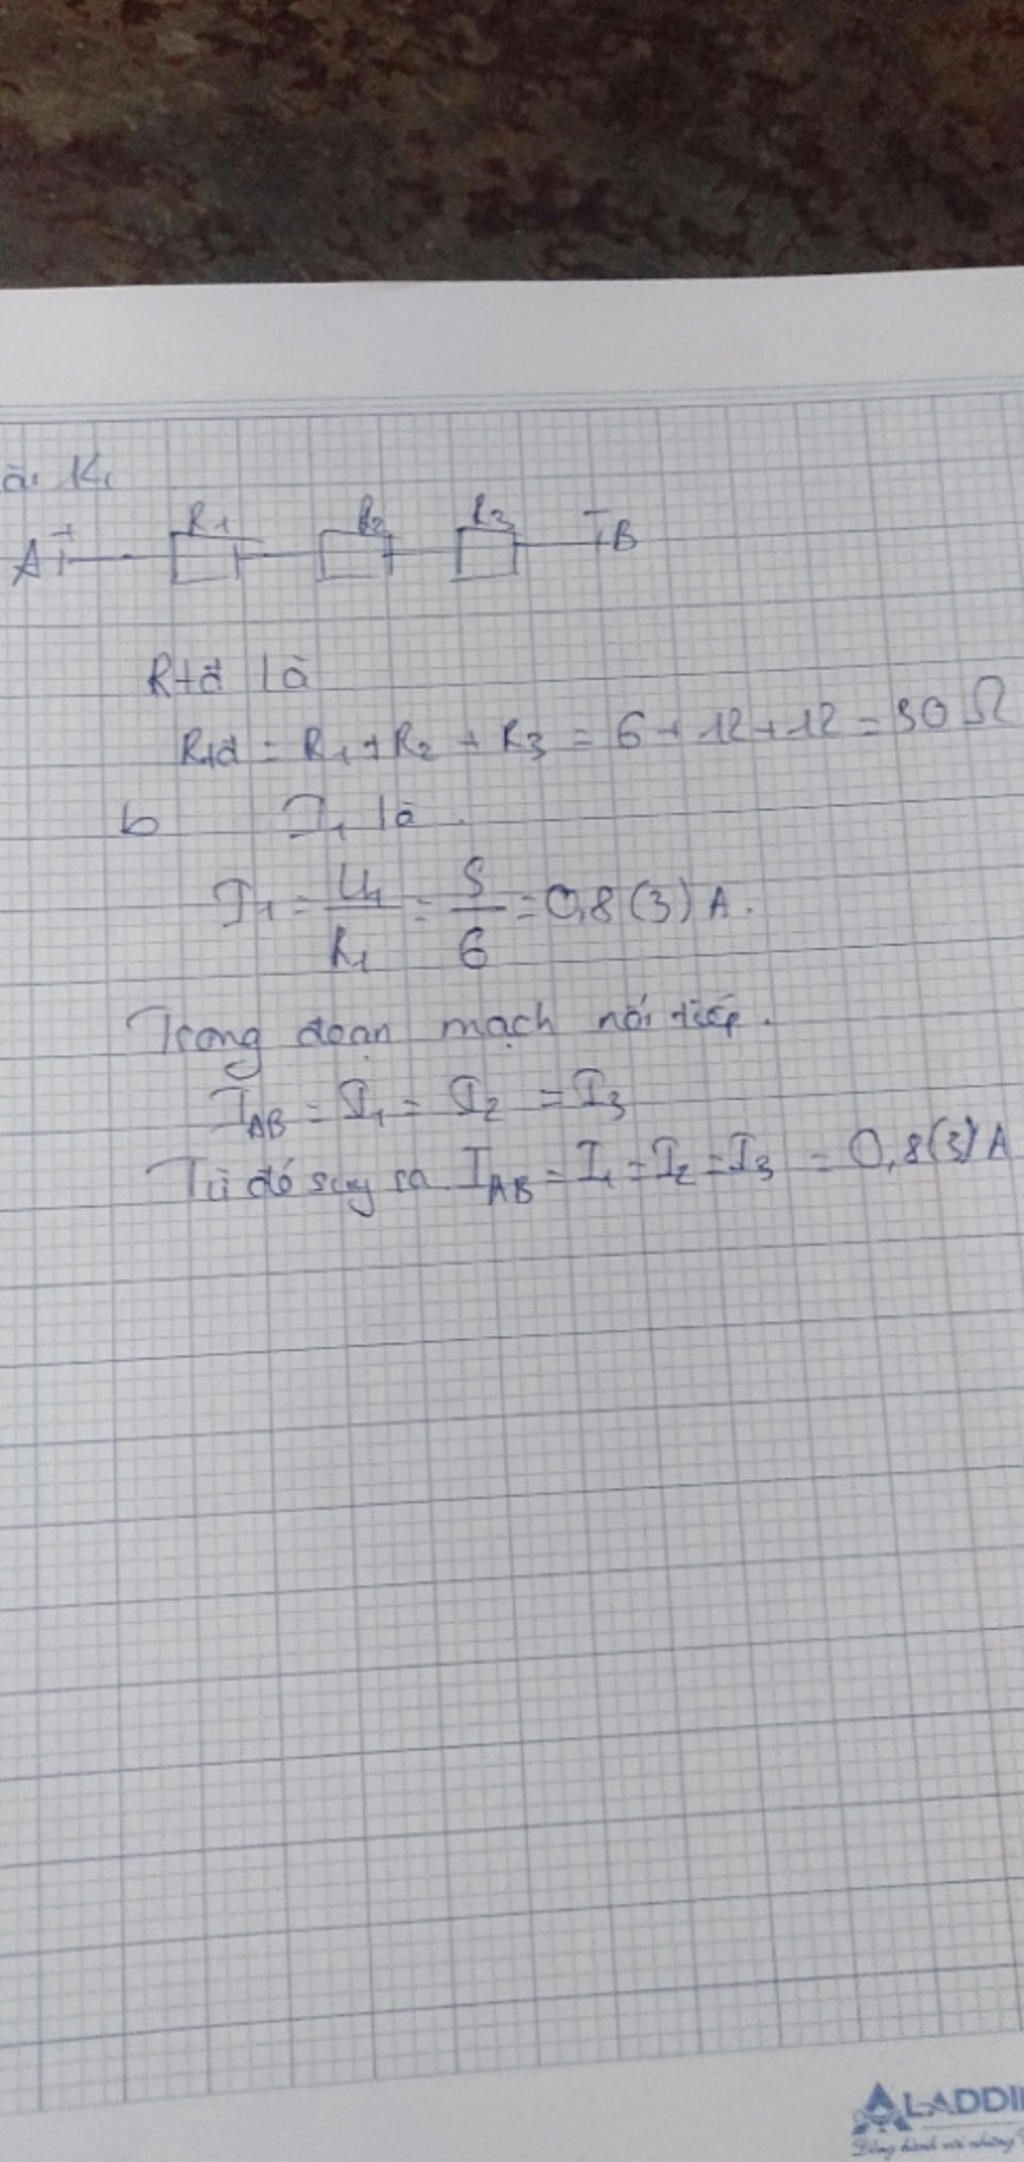 ài K1
A + R1 R2 R3 - B
Rtđ là
Rtđ = R1 + R2 + R3 = 6 + 12 + 12 = 30 Ω
b I1 là.
I1 = U1/R1 = 5/6 = 0,8(3) A.
Trong đoạn mạch nối tiếp.
IAB = I1 = I2 = I3
Từ đó suy ra IAB = I1 = I2 = I3 = 0,8(3) A
ALADDI
Đồng hành với những